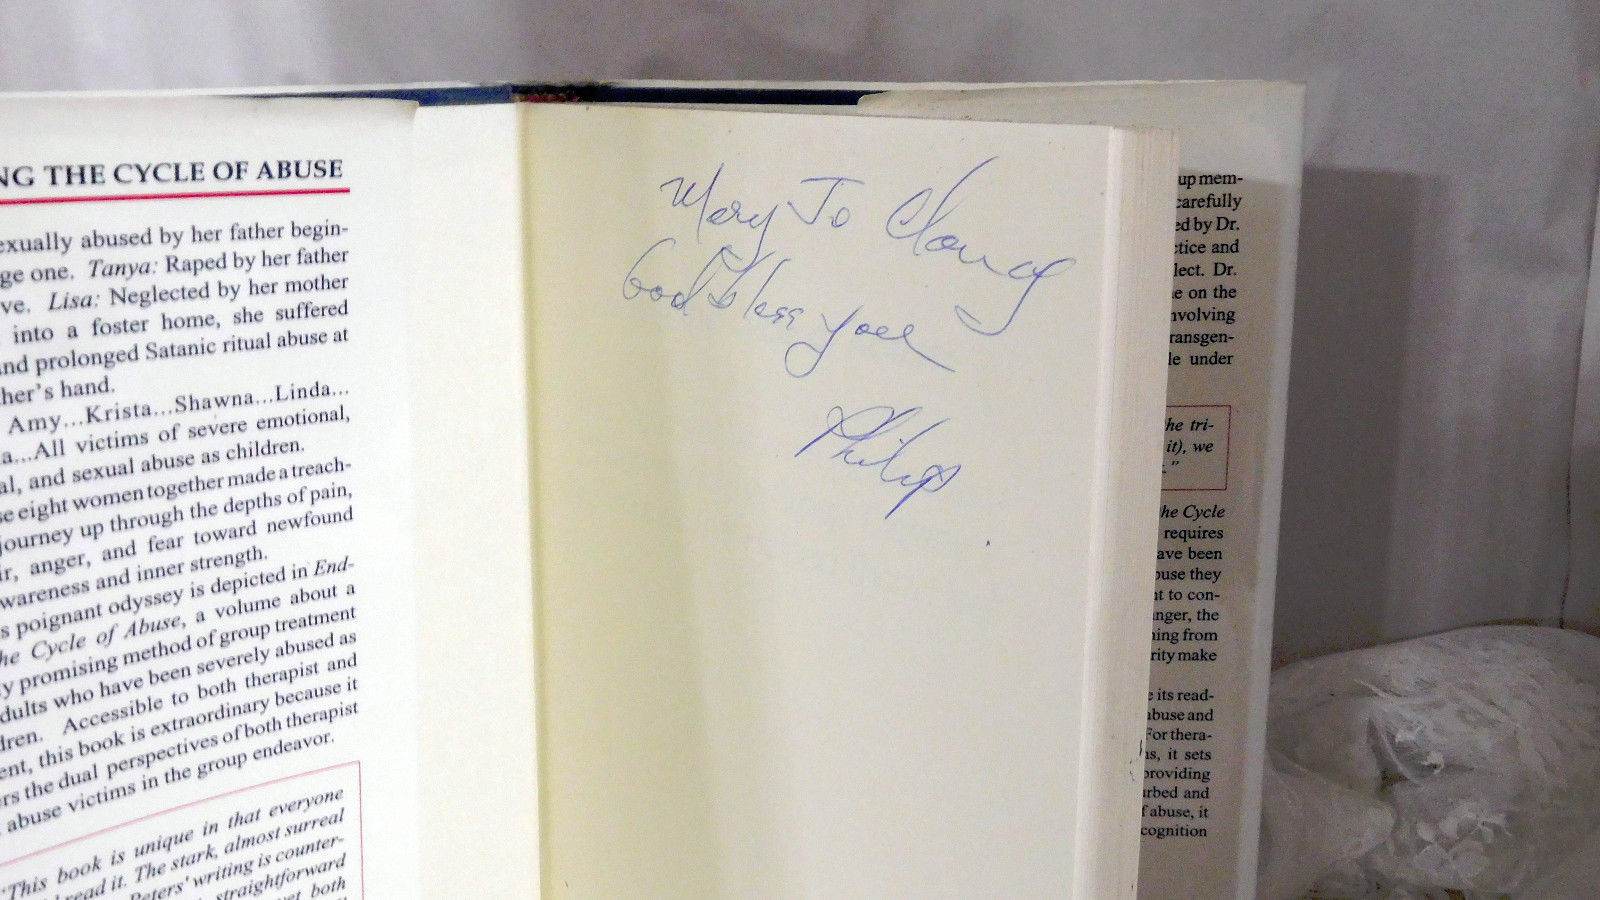 NG THE CYCLE OF ABUSE
exually abused by her father begin-
ge one. Tanya: Raped by her father
ve. Lisa: Neglected by her mother
into a foster home, she suffered
nd prolonged Satanic ritual abuse at
ther's hand.
Amy...Krista...Shawna...Linda...
a...All victims of severe emotional,
al, and sexual abuse as children.
se eight women together made a treach-
journey up through the depths of pain,
ir, anger, and fear toward newfound
wareness and inner strength.
s poignant odyssey is depicted in End-
he Cycle of Abuse, a volume about a
y promising method of group treatment
dults who have been severely abused as
dren. Accessible to both therapist and
ent, this book is extraordinary because it
ers the dual perspectives of both therapist
abuse victims in the group endeavor.
"This book is unique in that everyone
read it. The stark, almost surreal
Peters' writing is counter-
straightforward
yet both
Mary Jo
God bless you
Philip
up mem-
carefully
ed by Dr.
ctice and
lect. Dr.
e on the
nvolving
ransgen-
le under
he tri-
it), we
."
he Cycle
requires
ave been
buse they
nt to con-
nger, the
ning from
rity make
e its read-
abuse and
For thera-
ns, it sets
providing
urbed and
f abuse, it
cognition